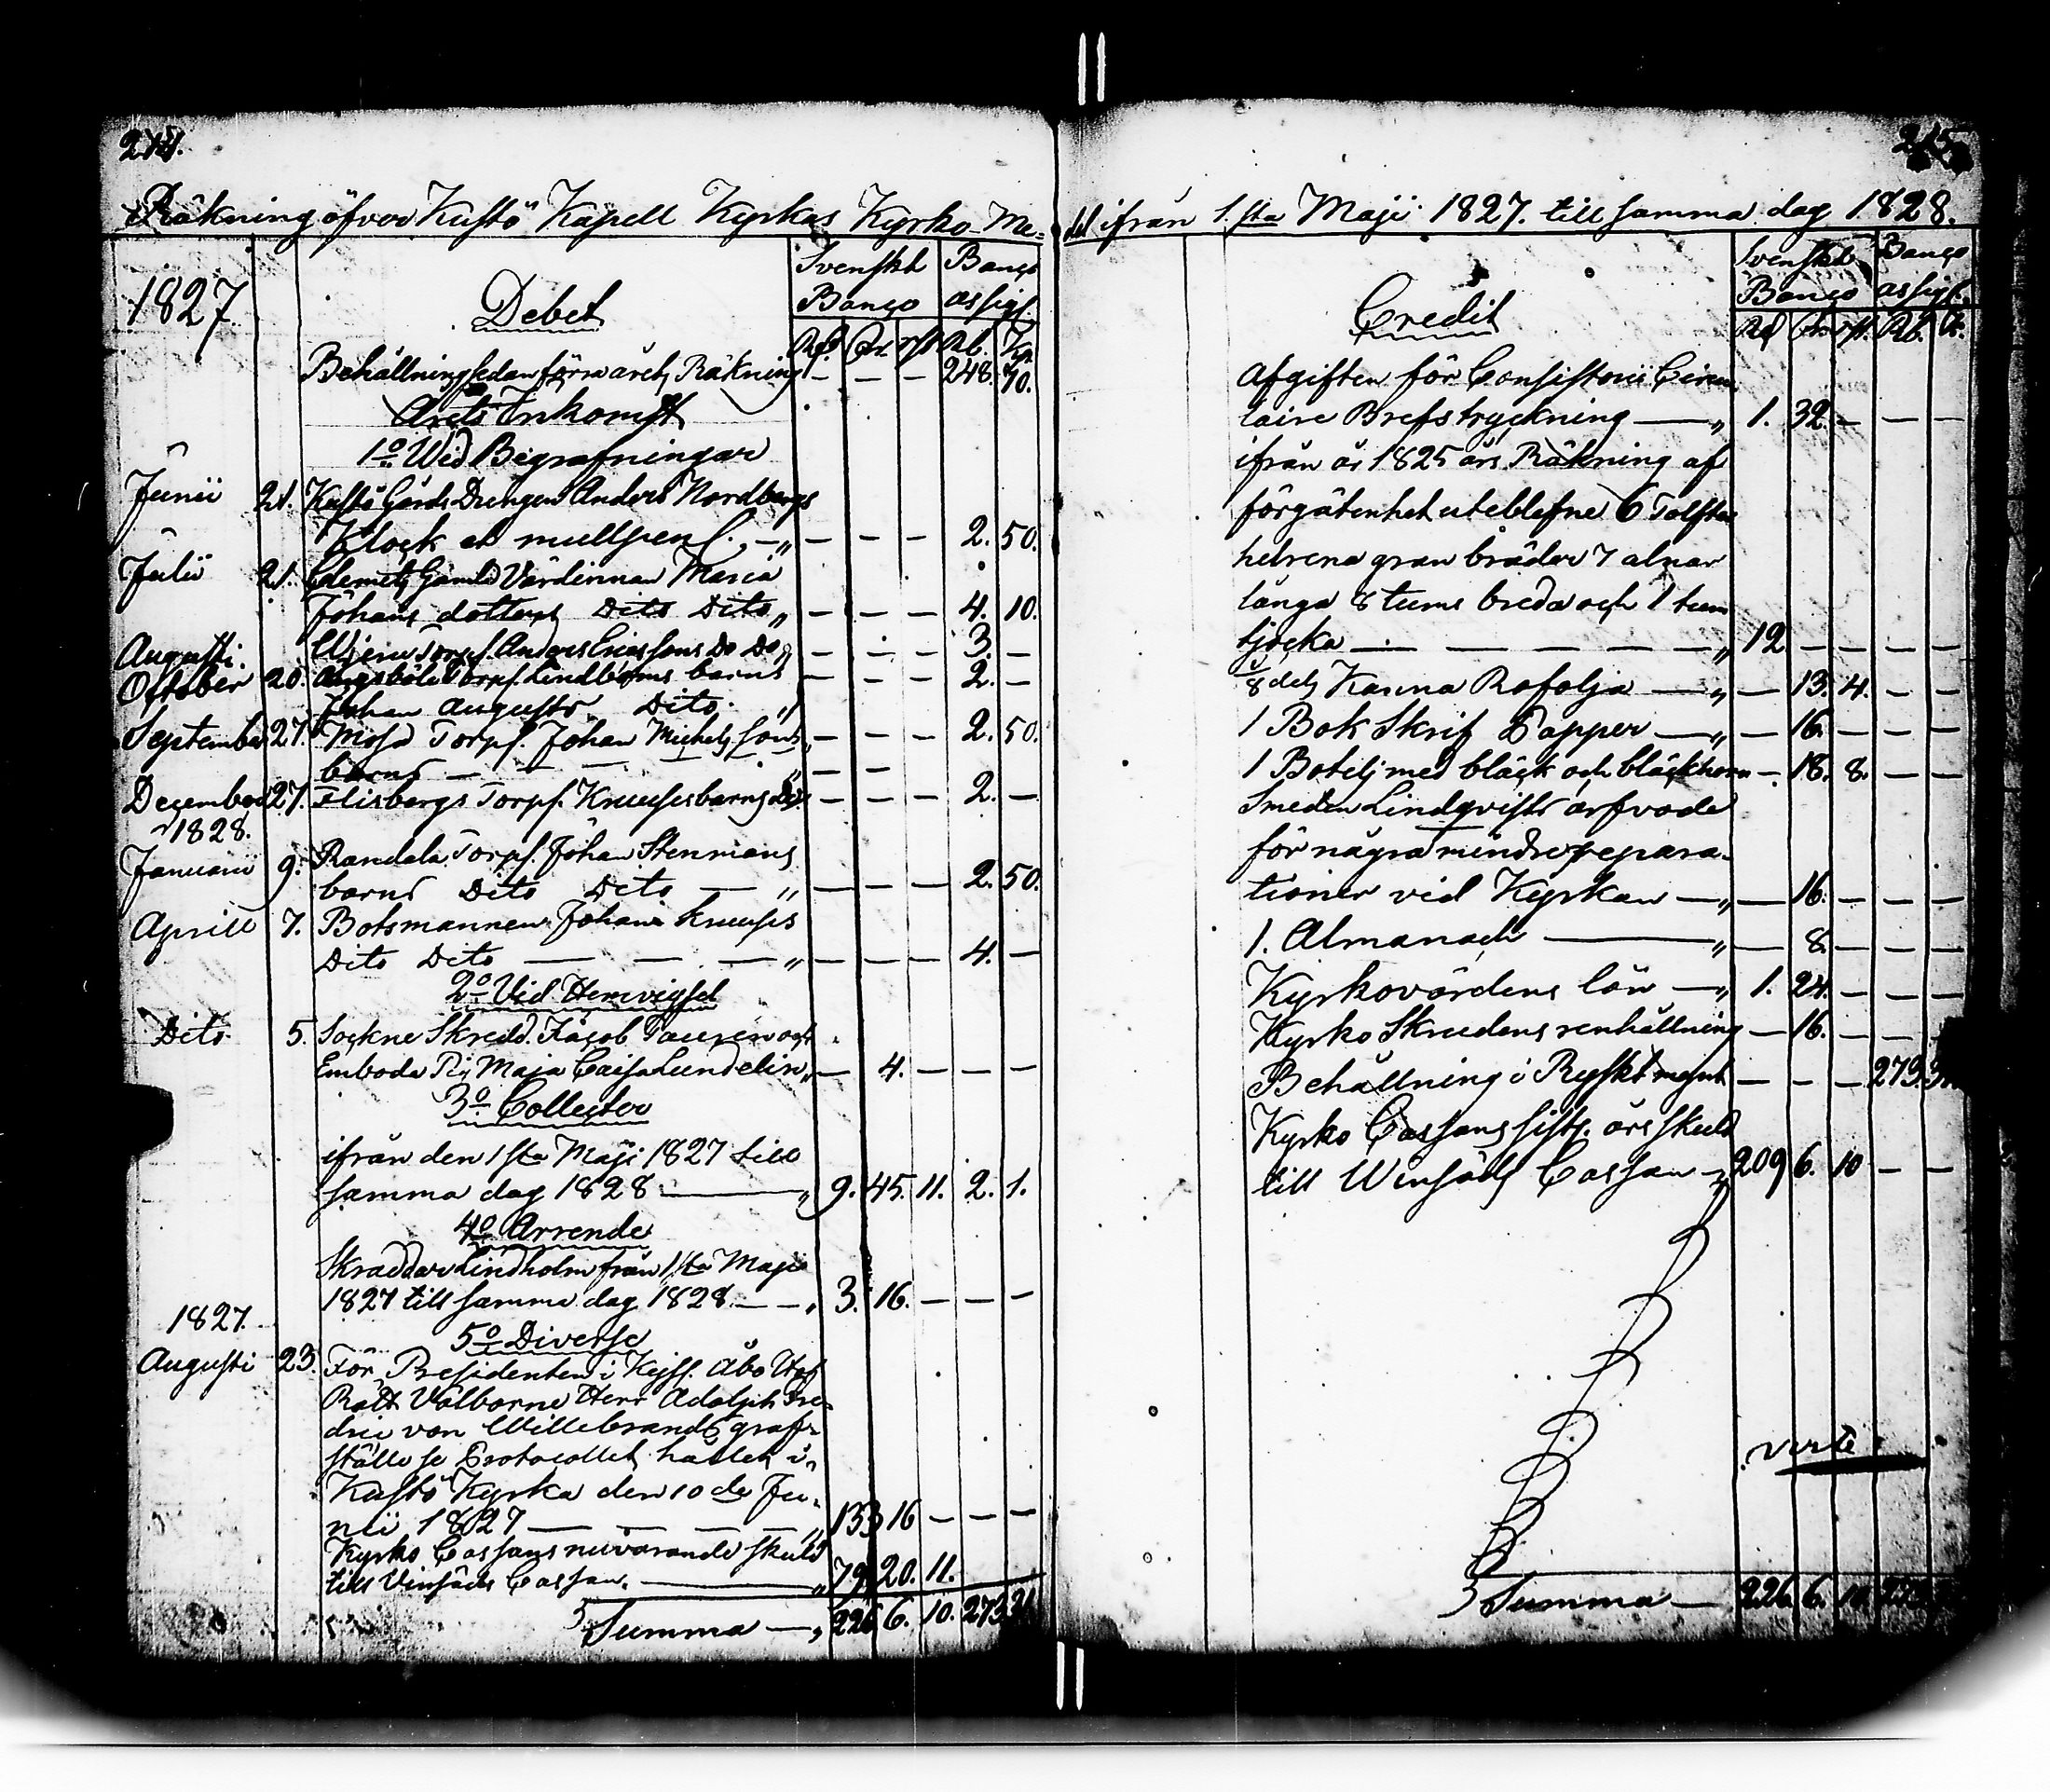 214.
Räkning öfver Kustö Kapell Kyrkas Kyrko-Me-
1827
Debet
Svenskt Banco
Banco assig.
Rd. Sk. rst. Rb. Kp.
Behållning sedan förra årets Räkning — — — 248. 70.
Årets Inkomst
1o Wid Begrafningar
Junii 21. Kustö Gårds Drengen Anders Nordbergs
Klock et mullpen. — „ — — — 2. 50.
Julii 21. Clemets Gamla Värdinnan Maria
Johans dotters Dito Dito „ — — — 4. 10.
Augusti. Torpf. Anders Ericssons Do Do „ — — — 3. —
October 20. Ängsböle Torpf. Lindboms barns — — — 2. —
Johan Augusts Dito. „
September 27. Mosa Torpf. Johan Michelssons „ — — — 2. 50.
barns — — — — „ — —
December 27. Flisbergs Torpf. Knuuses barns Do — — — 2. —
1828.
Januarii 9. Randala Torpf. Johan Stenmans
barns Dito Dito — „ — — — 2. 50.
Aprill 7. Botsmannen Johan Knuuses
Dito Dito — — — „ — — — 4. —
2o Vid Hemvigsel
Dito 5. Sockne Skredd. Jacob Tauren och
Emboda Pig. Maja Caisa Lundelin „ — 4. — — —
3o Collecter
ifrån den 1sta Maji 1827 till
samma dag 1828 — „ 9. 45. 11. 2. 1.
4o Arrende
Skraddar Lindholm från 1sta Maji
1827 till samma dag 1828 — — „ 3. 16. — — —
1827.
5o Diverse
Augusti 23. För Presidenten i Kejss. Åbo Hof
Rätt Välborne Herr Adolph Fre-
dric von Willebrands graf-
ställe se Protocollet hållet i
Kustö Kyrka den 10de Ju-
nii 1827 — — — — „ 133 16 — — —
Kyrko Cassans nuvarande skuld
till Vinsåds Cassan. — „ 79. 20. 11.
Summa — „ 226 6. 10. 273 31.
215
del ifrån 1.sta Maji 1827. till samma dag 1828.
Credit
Svenskt Banco
Banco assig.
Rd Sk rst. Rb. K.
Afgiften för Consistorii Circu-
laire Brefs tryckning — „ 1. 32. — — —
ifrån år 1825 års Räkning af
förgätenhet uteblefne 6 Tolfter
helrena gran bräder 7 alnar
långa 8 tums breda och 1 tum
tjocka — — — — — „ 12 — — — —
/8 dels Kanna Rofolja — „ — 13. 4. — —
1 Bok Skrif Papper — „ — 16. — — —
1 Botelj med bläck och bläckhorn — 18. 8. — —
Smeden Lindqvists arfvode
för några mindre repara-
tioner vid Kyrkan — „ — 16. — — —
1. Almanach — „ — 8. — — —
Kyrkovärdens lön — „ 1. 24. — — —
Kyrko Skrudens renhållning — 16. — —
Behållning i Ryskt mynt — — — 273.
Kyrko Cassans sista års skuld
till Winsåds Cassan — „ 209 6. 10 — —
verte
Summa — 226. 6. 10.